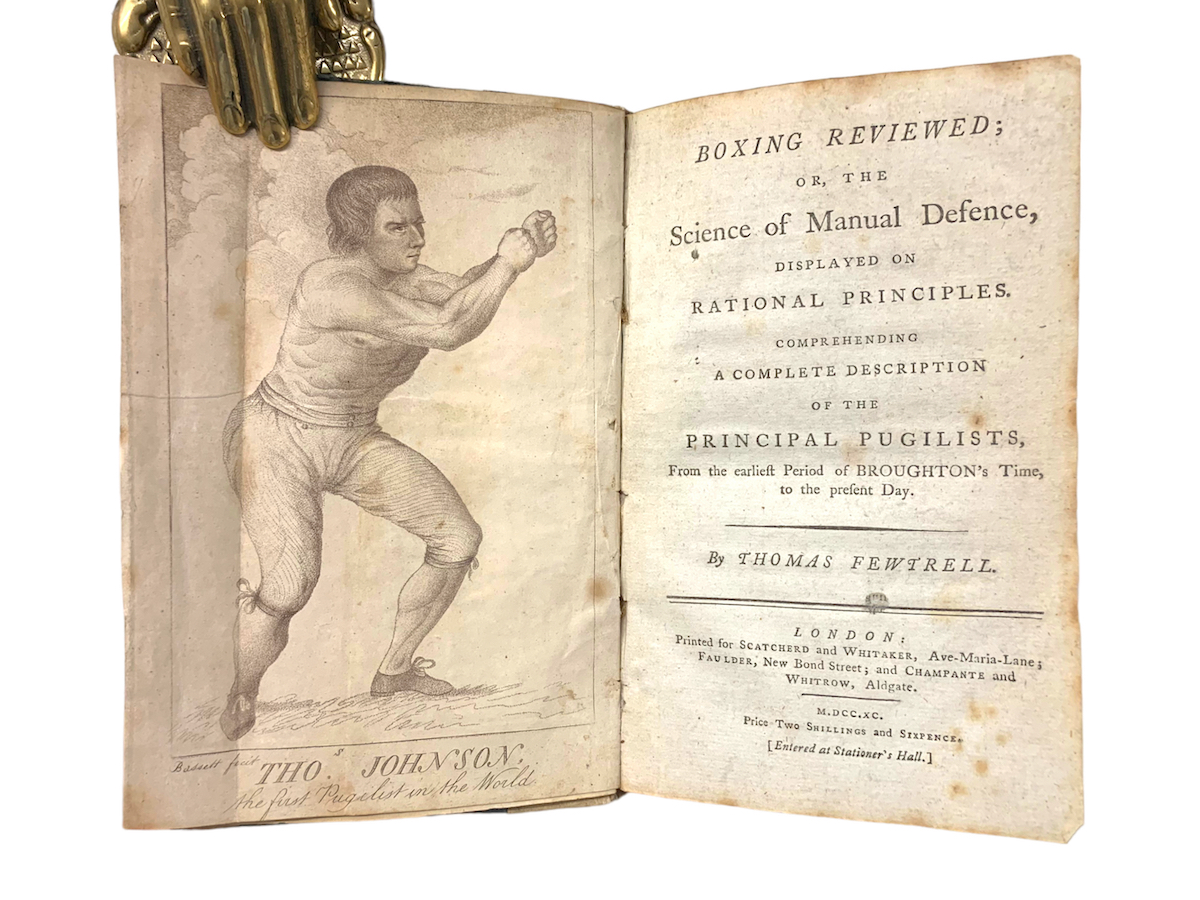 Bassett fecit
THO.S JOHNSON,
the first Pugelist in the World
BOXING REVIEWED;
OR, THE
Science of Manual Defence,
DISPLAYED ON
RATIONAL PRINCIPLES.
COMPREHENDING
A COMPLETE DESCRIPTION
OF THE
PRINCIPAL PUGILISTS,
From the earlieſt Period of BROUGHTON's Time,
to the preſent Day.
By THOMAS FEWTRELL.
LONDON:
Printed for SCATCHERD and WHITAKER, Ave-Maria-Lane;
FAULDER, New Bond Street; and CHAMPANTE and
WHITROW, Aldgate.
M.DCC.XC.
Price Two SHILLINGS and SIXPENCE.
[Entered at Stationer's Hall.]